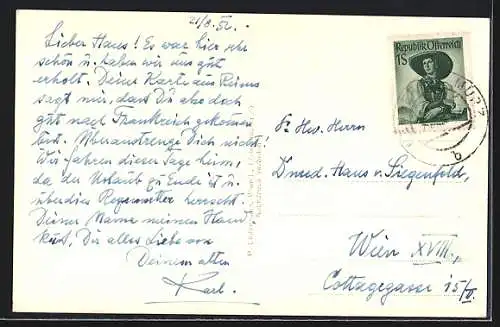 21/8. 52.
Lieber Hans! Es war hier sehr
schön u. haben wir uns gut
erholt. Deine Karte aus Reims
sagt mir, dass Du also doch
gut nach Frankreich gekommen
bist. Überanstrenge Dich nicht!
Wir fahren dieser Tage heim,
da der Urlaub zu Ende ist u.
überdies Regenwetter herrscht.
Deiner Mama meinen Hand-
kuß, Dir alles Liebe von
Deinem alten
Karl.
Republik Österreich
1S
b
Sr. Hw. Herrn
Dr med. Hans v. Siegenfeld,
Wien XVIII.,
Cottagegasse 15/II.